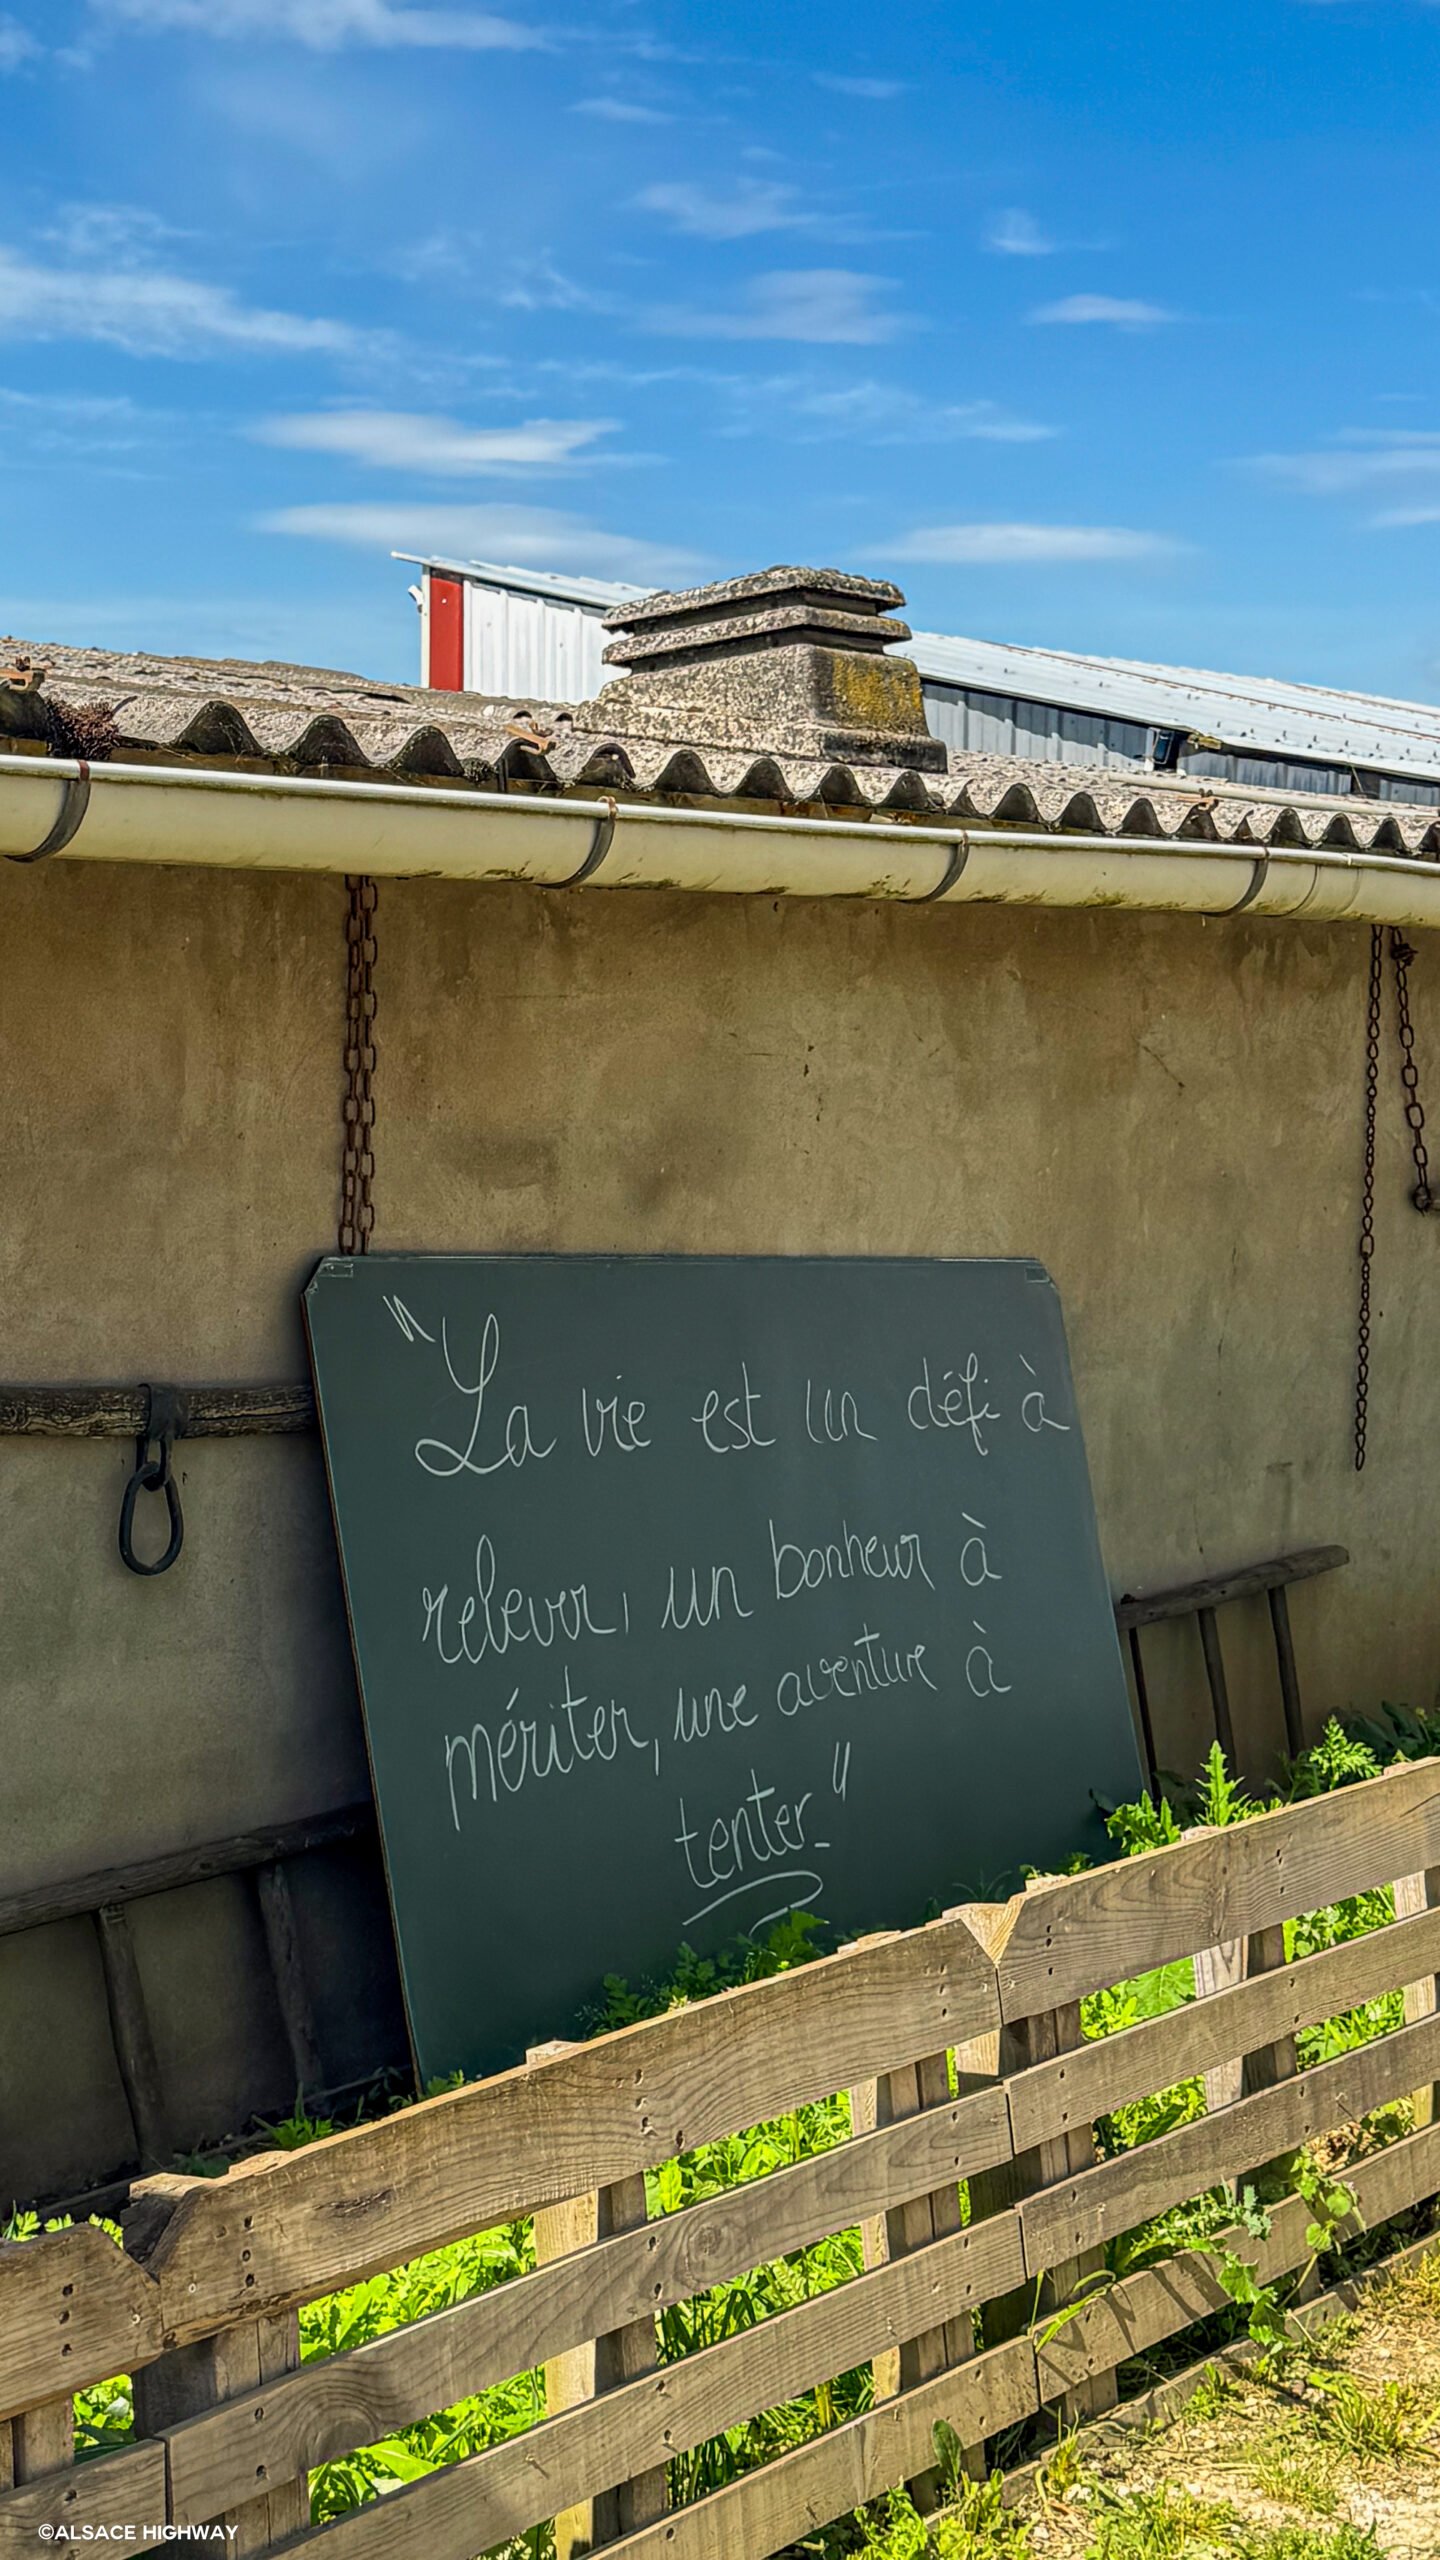 "La vie est un défi à
relever, un bonheur à
mériter, une aventure à
tenter."
©ALSACE HIGHWAY